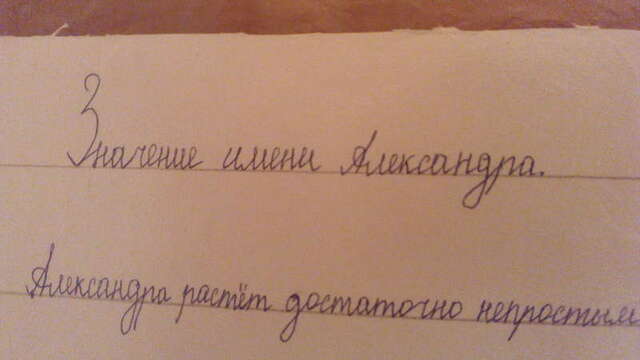 Значение имени Александра.
Александра растёт достаточно непростым